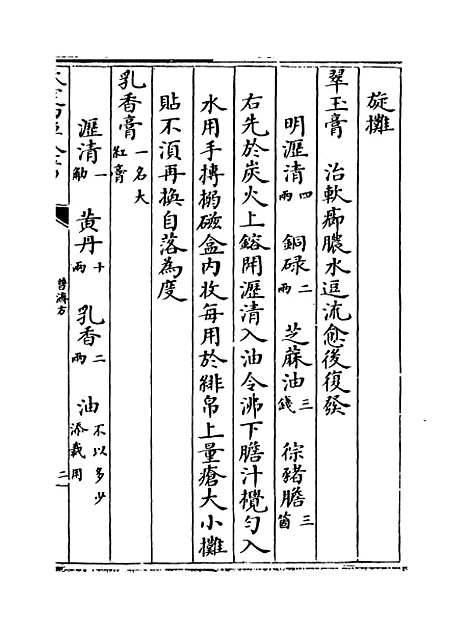 旋攤
翠玉膏 治軟癤膿水逗流愈後復發
明瀝清四兩 銅碌二兩 芝蔴油三錢 㹰豬膽三箇
右先於炭火上鎔開瀝清入油令沸下膽汁攪勻入
水用手摶搦磁盒內收每用於緋帛上量瘡大小攤
貼不湏再換自落為度
乳香膏一名大紅膏
瀝清一觔 黄丹十兩 乳香二兩 油不以多少添裁用
普濟方
二